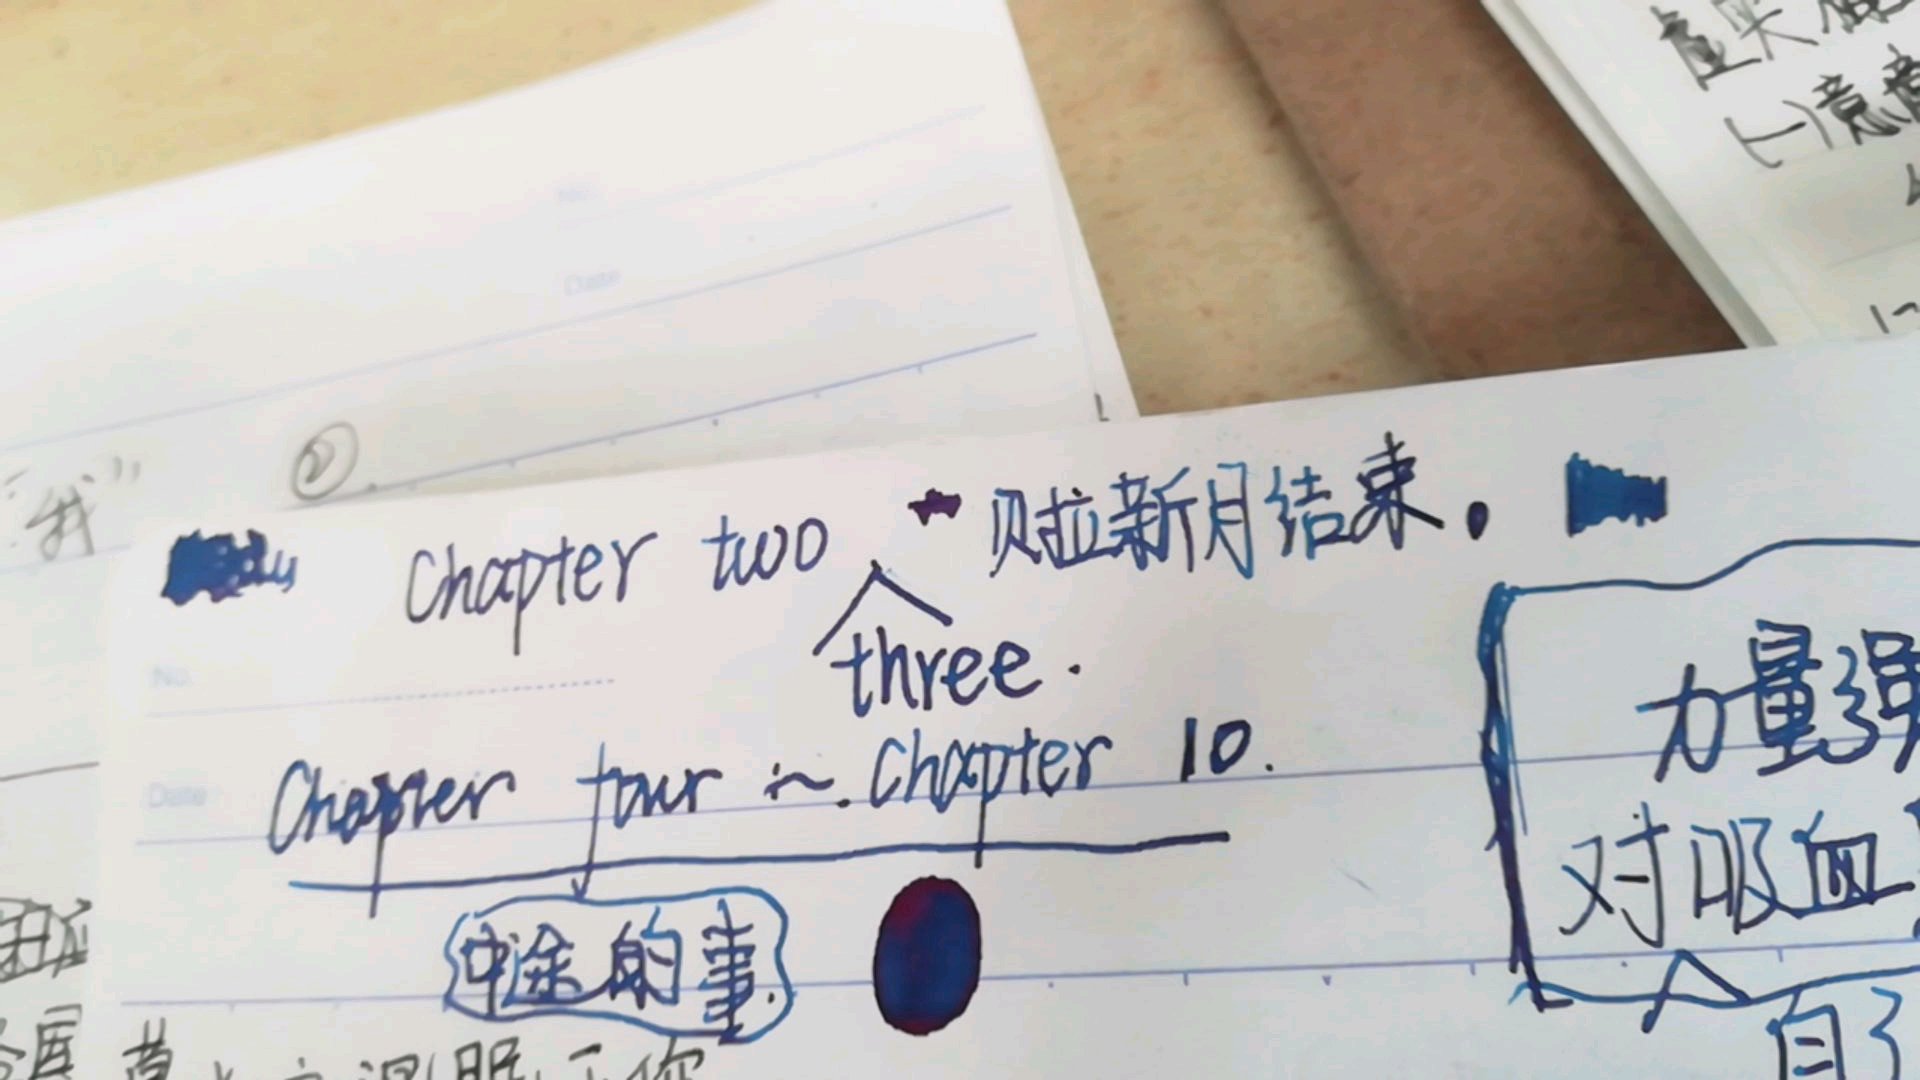 虚实
(一)意
No.
Date
"我"
②.
Chapter two 贝拉新月结束.
three.
No.
Chapter four ~. Chapter 10.
Date
中途的事.
力量强
对吸血
自